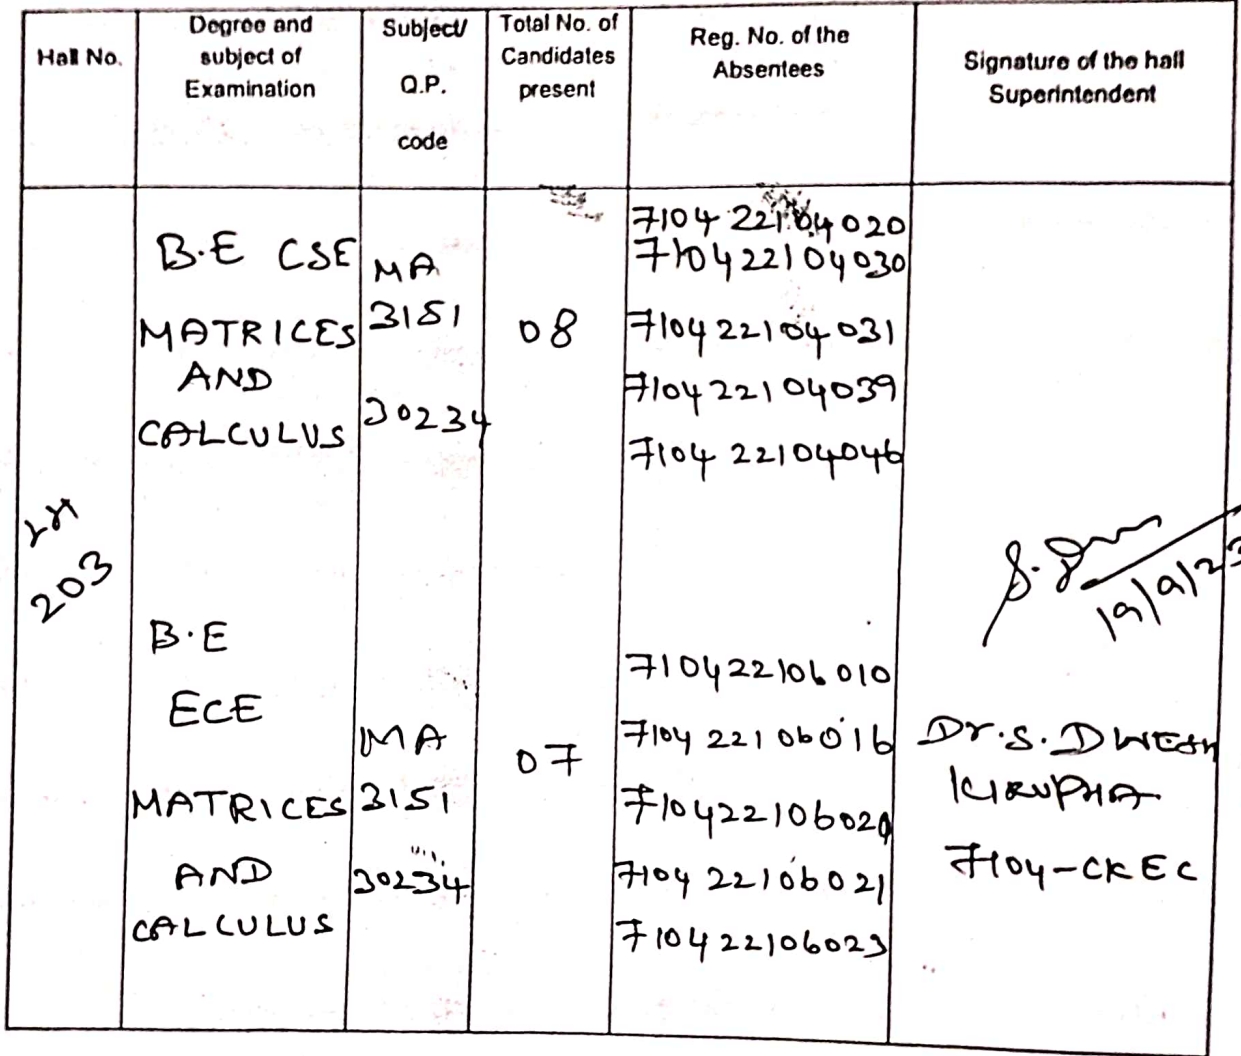 Hall No.
Degree and
subject of
Examination
Subject/
Q.P.
code
Total No. of
Candidates
present
Reg. No. of the
Absentees
Signature of the hall
Superintendent
203
B.E CSE
MATRICES
AND
CALCULUS
MA
3151
30234
08
710422104020
710422104030
710422104031
710422104039
710422104046
B.E
ECE
MATRICES
AND
CALCULUS
MA
3151
30234
07
710422106010
710422106016
710422106020
710422106021
710422106023
19/9/23
Dr.S.
KIRUPHA
7104-CKEC